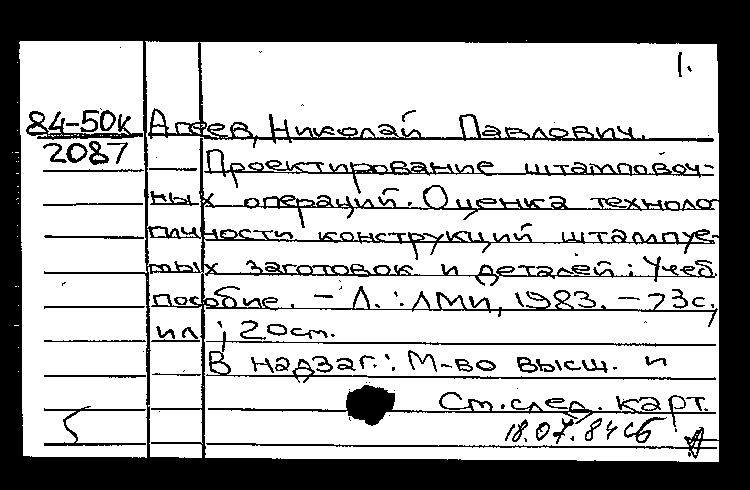 1.
84-50к Агеев, Николай Павлович.
2087 Проектирование штамповоч-
ных операций. Оценка техноло
гичности конструкций штампуе-
мых заготовок и деталей: Учеб.
пособие. — Л.: ЛМИ, 1983. — 73с.,
ил; 20см.
В надзаг.: М-во высш. и
См. след. карт.
5 18.07.84 сб